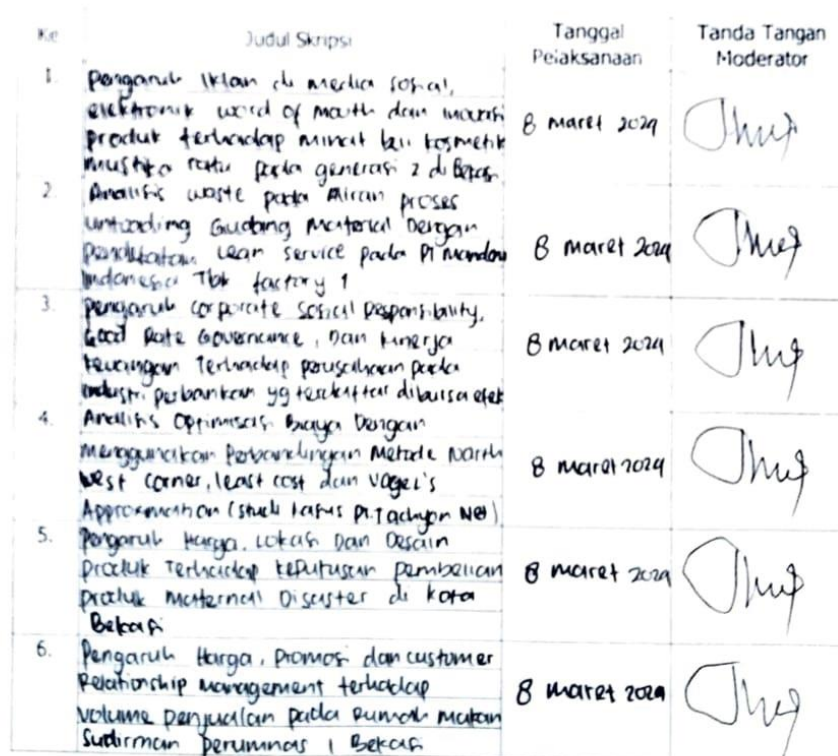 Ke Judul Skripsi Tanggal Pelaksanaan Tanda Tangan Moderator
1. Pengaruh Iklan di media sosial,
elektronik word of mouth dan inovasi
produk terhadap minat beli kosmetik
mustika ratu pada generasi z di Bekasi
8 maret 2024
2. Analisis waste pada Aliran proses
unloading Gudang Material Dengan
pendekatan Lean service pada PT Mandom
Indonesia Tbk factory 1
8 maret 2024
3. pengaruh corporate Sosical Responsibility,
Good Rate Governance, Dan kinerja
keuangan Terhadap perusahaan pada
industri perbankan yg terdaftar dibursa efek
8 maret 2024
4. Analisis Optimisasi Biaya Dengan
menggunakan Perbandingan Metode North
West corner, least cost dan Vogel's
Approximation (studi kasus PT. Tachyon Net)
8 maret 2024
5. Pengaruh Harga, Lokasi Dan Desain
produk Terhadap keputusan pembelian
produk Maternal Disaster di kota
Bekasi
8 maret 2024
6. Pengaruh Harga, Promosi dan customer
Relationship management terhadap
volume penjualan pada Rumah makan
Sudirman perumnas 1 Bekasi
8 maret 2024